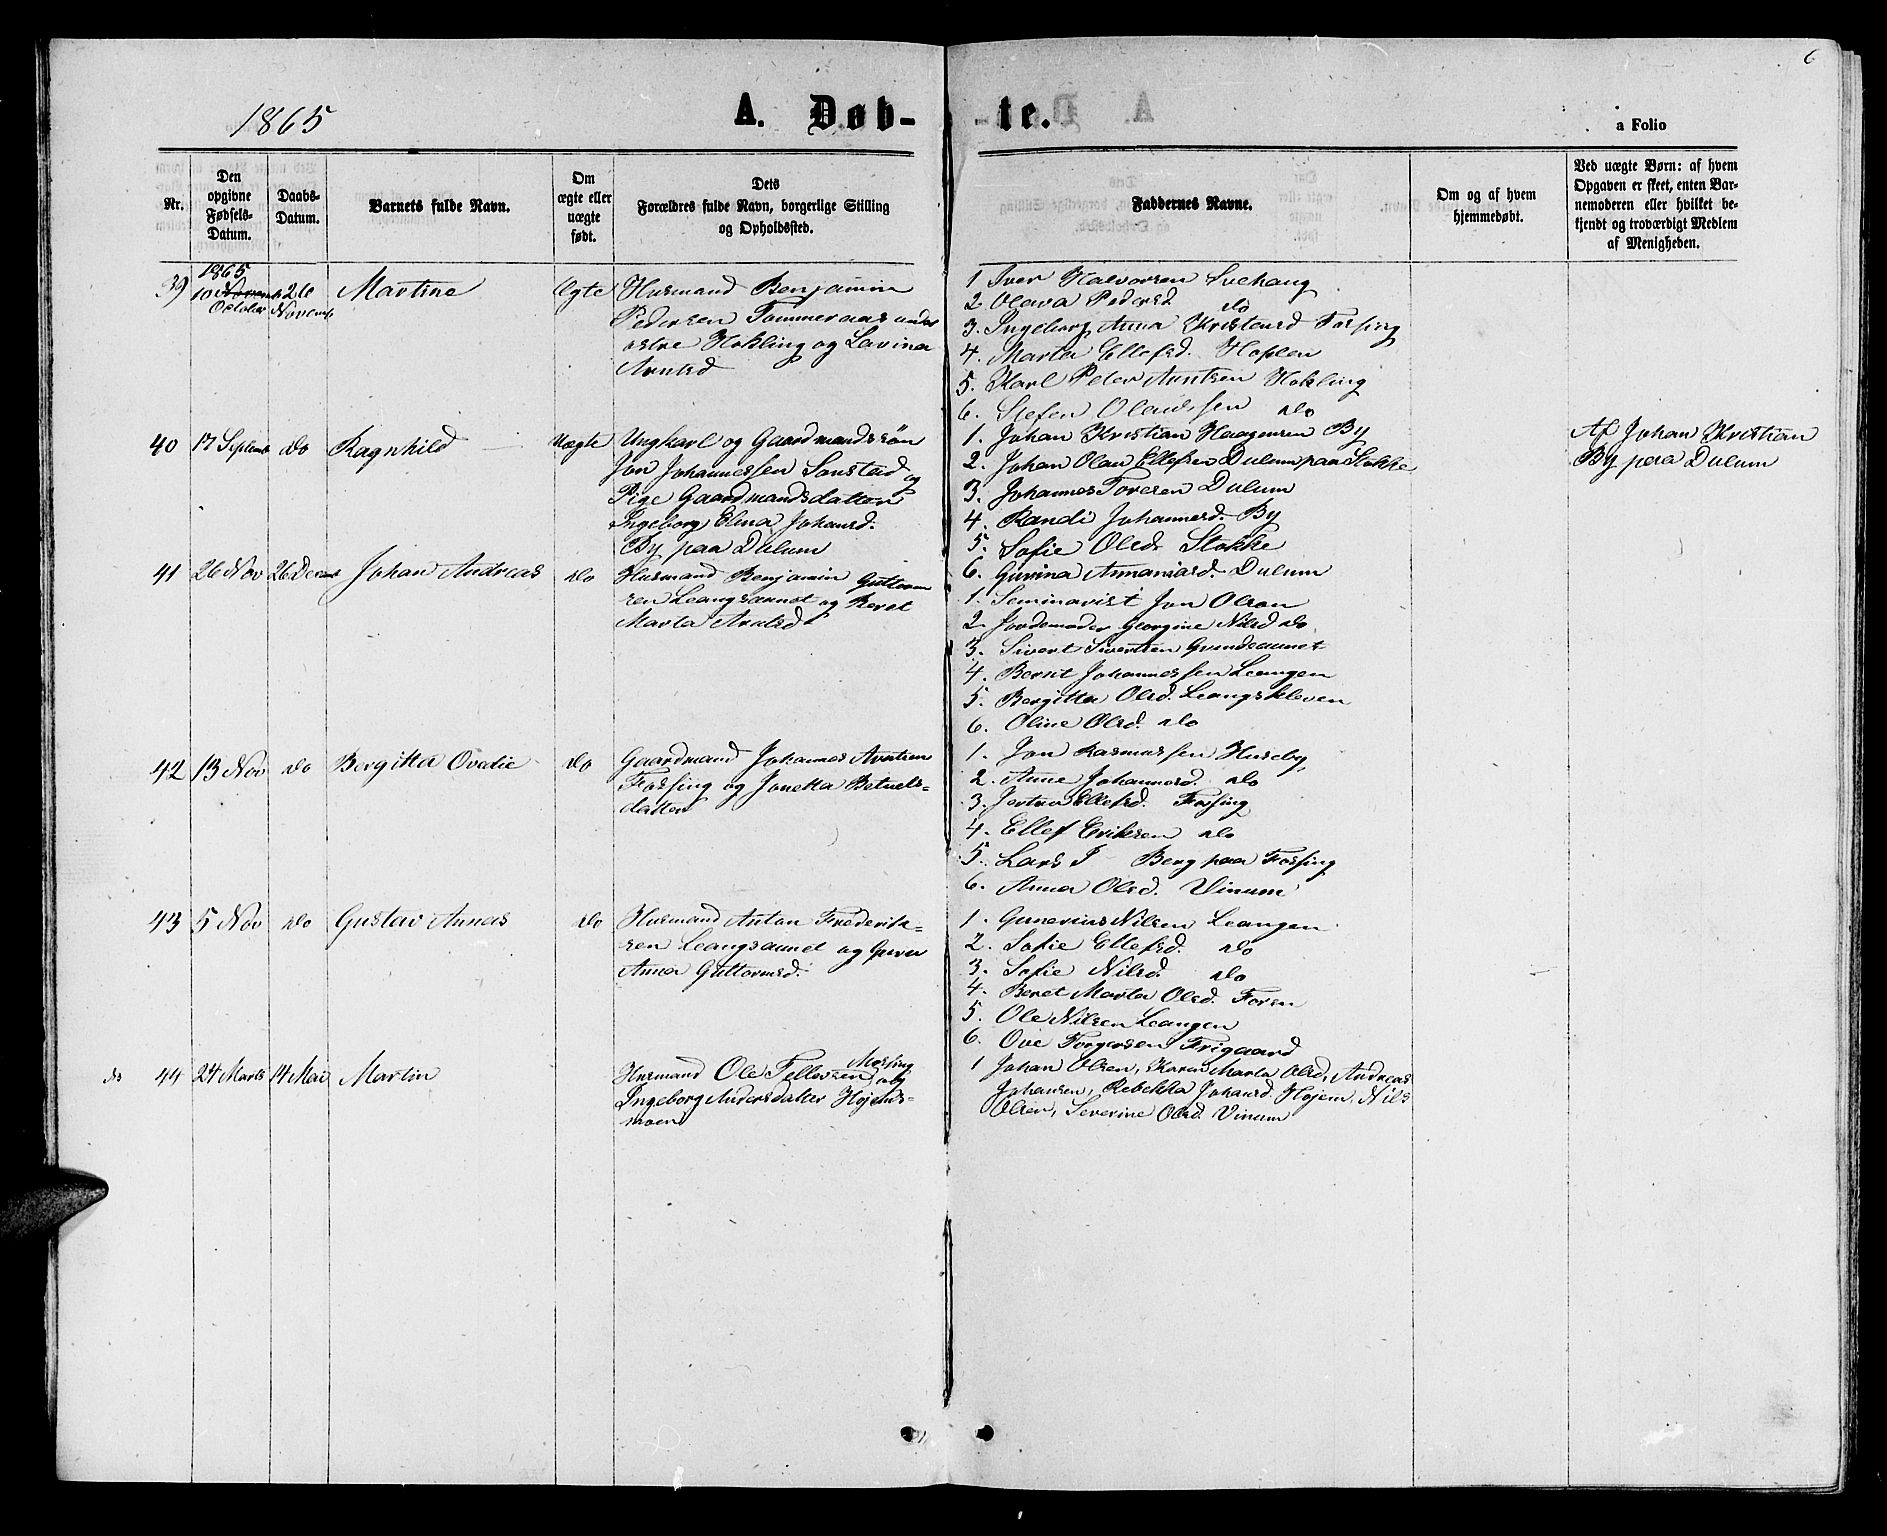 6
1865
A. Døb-
te.
a Folio
Nr.
Den opgivne Fødsels-Datum.
Daabs-Datum.
Barnets fulde Navn.
Om ægte eller uægte født.
Dets Forældres fulde Navn, borgerlige Stilling og Opholdssted.
Faddernes Navne.
Om og af hvem hjemmedøbt.
Ved uægte Børn: af hvem Opgaven er skeet, enten Barnemoderen eller hvilket bekjendt og troværdigt Medlem af Menigheden.
1865
39 10 Novemb October 26 Novemb Martine Ægte Husmand Benjamin
Pedersen Tømmeraas under
østre Hokling og Lavina
Arntsd
1 Iver Halvorsen Svehaug
2. Olava Pedersd do
3. Ingeborg Anna Kristensd Forsing
4. Marta Ellefsd. Hoplen
5. Karl Peter Arntsen Hokling
6. Stefen Olaussen do
40 17 Septemb do Ragnhild Uægte Ungkarl og Gaardmandssøn
Jon Johannessen Sonstad og
Pige Gaardmandsdatter
Ingeborg Elina Johansd.
By paa Dulum
1. Johan Kristian Haagensen By
2. Johan Olau Ellefsen Dulum paa Stokke
3. Johannes Toresen Dulum
4. Randi Johannesd. By
5. Sofie Olsd. Stokke
6. Gurina Annaniasd. Dulum
Af Johan Kristian
By paa Dulum
41 26 Nov 26 Decemb Johan Andreas do Husmand Benjamin Guttorm
sen Leangsaunet og Beret
Marta Arntsd
1. Seminarist Jon Olson
2. Jordemoder Georgine Nilsd do
3. Sivert Sivertsen Grandeaunet
4. Bernt Johannessen Leangen
5. Bergitta Olsd. Leangskleven
6. Oline Olsd. do
42 13 Nov do Bergitta Ovedie do Gaardmand Johannes Arntsen
Forsing og Jonetta Betuels-
datter
1. Jon Rasmussen Huseby
2. Anne Johannesd. do
3. Jertru Ellefsd. Forsing
4. Ellef Eriksen do
5. Lars J Berg paa Forsing
6. Anna Olsd. Vinum
43 5 Nov do Gustav Annæs do Husmand Anton Frederik-
sen Leangsaunet og
Anna Guttormsd.
1. Gunerius Nilsen Leangen
2. Sofie Ellefsd. do
3. Sofie Nilsd. do
4. Beret Marta Olsd. Foren
5. Ole Nilsen Leangen
6. Ove Torgersen Frigaard
44 24 Marts 14 Mai Martin Husmand Ole Tellevsen Mossing og
Ingeborg Andersdatter Højems-
moen
1 Johan Olsen, Karen Marta Olsd, Andreas
Johansen, Rebekka Johansd. Højem, Nils
Olsen, Severine Olsd. Vinum